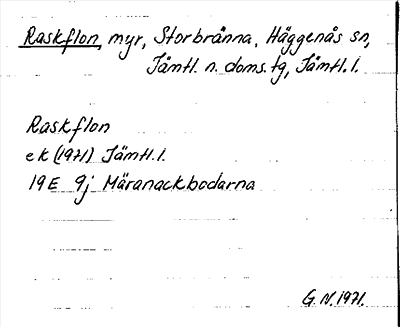 Raskflon, myr, Storbränna, Häggenås sn,
Jämtl. n. doms. tg, Jämtl. l.
Raskflon
ek (1971) Jämtl. l.
19E 9j Märanackbodarna
G. N. 1971.